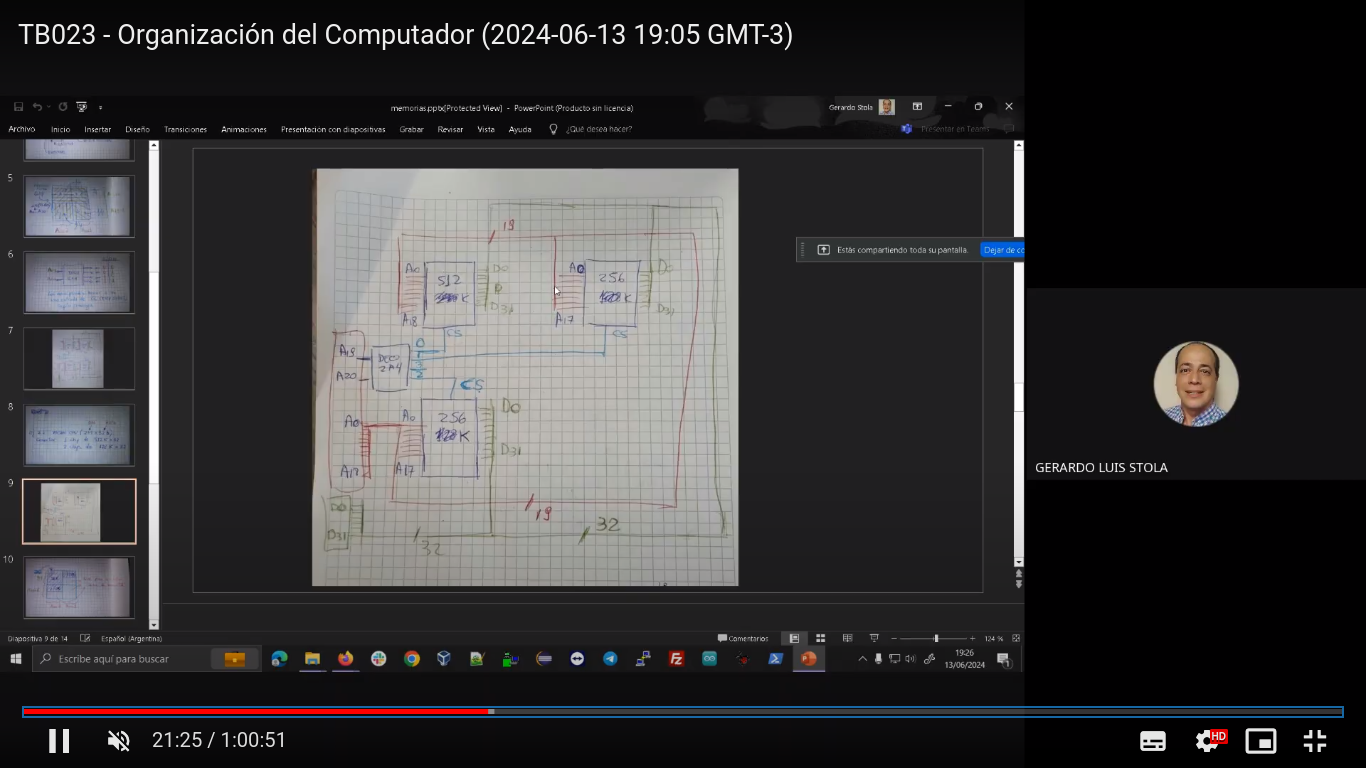 TB023 - Organización del Computador (2024-06-13 19:05 GMT-3)
memorias.pptx[Protected View] - PowerPoint (Producto sin licencia)
Gerardo Stola
Archivo Inicio Insertar Diseño Transiciones Animaciones Presentación con diapositivas Grabar Revisar Vista Ayuda ¿Qué desea hacer?
Presentar en Teams
5
6
7
8
9
10
19
A0 512 D0
K
A18 D31
CS
A0 256 D0
K
A17 D31
CS
A19 DECO 0
A20 2A4
CS
A0 A0 256 D0
K
A17 D31
D0
D31
19
32
32
Estás compartiendo toda su pantalla. Dejar de co
GERARDO LUIS STOLA
Diapositiva 9 de 14 Español (Argentina) Comentarios 124 %
Escribe aquí para buscar
19:26
13/06/2024
21:25 / 1:00:51
HD